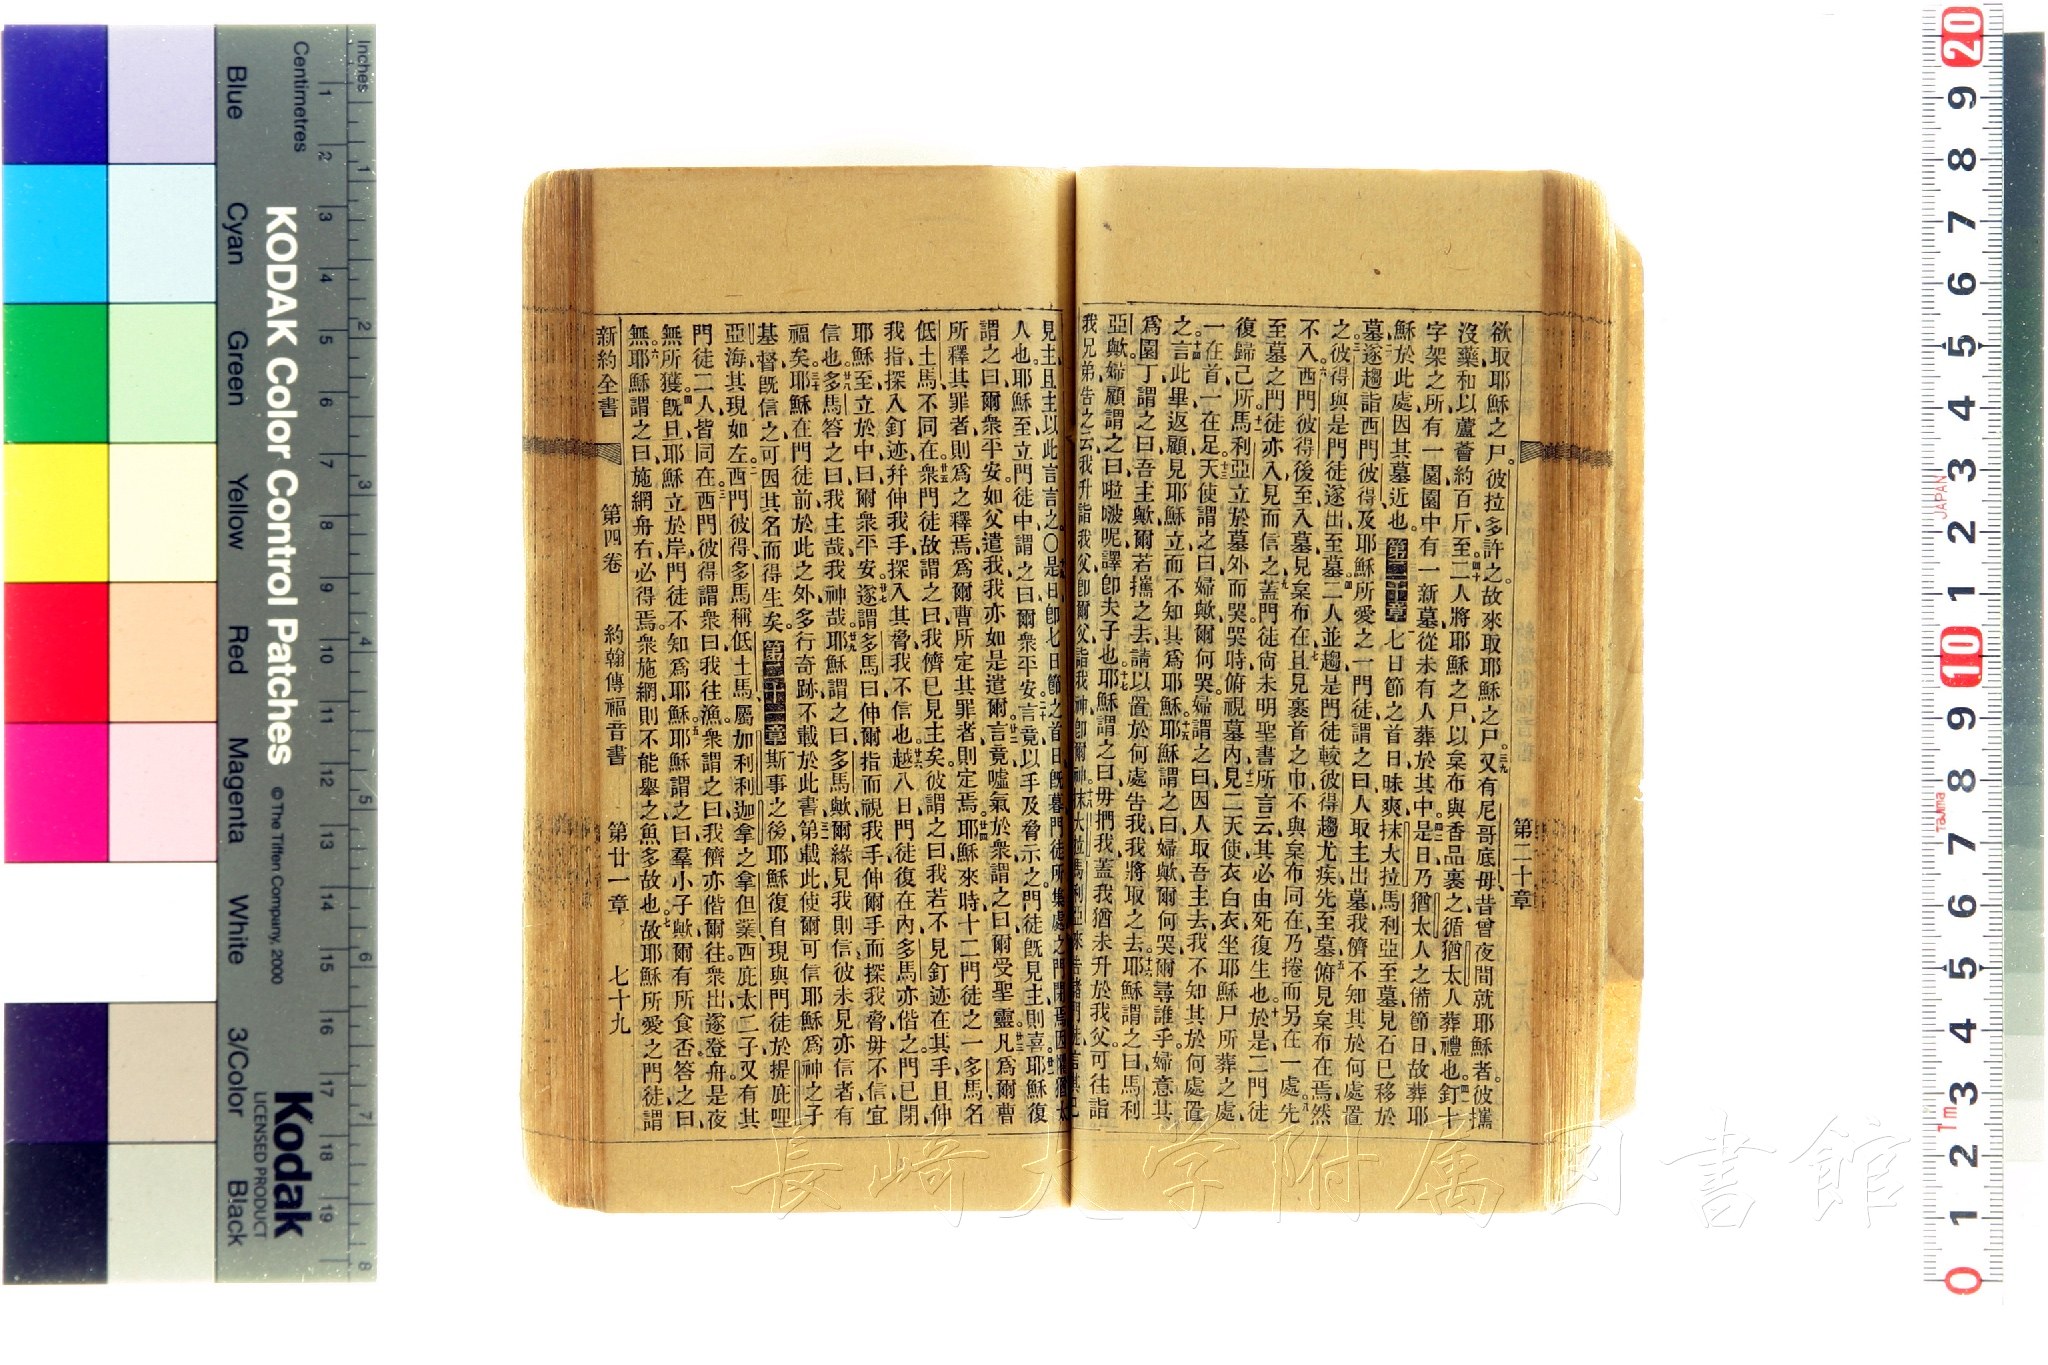 第二十章
欲取耶穌之尸、彼拉多許之、故來取耶穌之尸、又有尼哥底母、昔曾夜間就耶穌者、彼攜
沒藥和以蘆薈約百斤至、二人將耶穌之尸、以枲布與香品裹之、循猶太人葬禮也、釘十
字架之所有一園、園中有一新墓、從未有人葬於其中、是日乃猶太人之備節日、故葬耶
穌於此處、因其墓近也、第二十章七日節之首日昧爽、抹大拉馬利亞至墓、見石已移於
墓、遂趨詣西門彼得、及耶穌所愛之一門徒、謂之曰、人取主出墓、我儕不知其於何處置
之、彼得與是門徒遂出至墓、二人並趨、是門徒較彼得趨尤疾、先至墓、俯見枲布在焉、然
不入、西門彼得後至、入墓、見枲布在、且見裹首之巾、不與枲布同在、乃捲而另在一處、先
至墓之門徒亦入、見而信之、蓋門徒尚未明聖書所言云、其必由死復生也、於是二門徒
復歸己所、馬利亞立於墓外而哭、哭時俯視墓內、見二天使衣白衣、坐耶穌尸所葬之處、
一在首、一在足、天使謂之曰、婦歟、爾何哭、婦謂之曰、因人取吾主去、我不知其於何處置
之、言此畢、返顧見耶穌立、而不知其為耶穌、耶穌謂之曰、婦歟、爾何哭、爾尋誰乎、婦意其
為園丁、謂之曰、吾主歟、爾若攜之去、請以置於何處告我、我將取之去、耶穌謂之曰、馬利
亞歟、婦顧謂之曰、啦啵呢、譯即夫子也、耶穌謂之曰、毋捫我、蓋我猶未升於我父、可往詣
我兄弟告之云、我升詣我父即爾父、詣我神即爾神、抹大拉馬利亞來告諸門徒、言其已
見主、且主以此言言之、〇是日即七日節之首日既暮、門徒所集處之門閉焉、因懼猶太
人也、耶穌至、立門徒中、謂之曰、爾眾平安、言竟、以手及脅示之、門徒既見主則喜、耶穌復
謂之曰、爾眾平安、如父遣我、我亦如是遣爾、言竟、噓氣於眾、謂之曰、爾受聖靈、凡為爾曹
所釋其罪者、則為之釋焉、為爾曹所定其罪者、則定焉、耶穌來時、十二門徒之一多馬、名
低土馬、不同在、眾門徒故謂之曰、我儕已見主矣、彼謂之曰、我若不見釘迹在其手、且伸
我指探入釘迹、幷伸我手探入其脅、我不信也、越八日、門徒復在內、多馬亦偕之、門已閉、
耶穌至、立於中曰、爾眾平安、遂謂多馬曰、伸爾指而視我手、伸爾手而探我脅、毋不信、宜
信也、多馬答之曰、我主哉、我神哉、耶穌謂之曰、多馬歟、爾緣見我則信、彼未見亦信者有
福矣、耶穌在門徒前、於此之外、多行奇跡、不載於此書、第載此使爾可信耶穌為神之子
基督、既信之、可因其名而得生矣、第二十一章斯事之後、耶穌復自現與門徒於提庇哩
亞海、其現如左、西門彼得、多馬稱低土馬、屬加利利迦拿之拿但業、西庇太二子、又有其
門徒二人、皆同在、西門彼得謂眾曰、我往漁、眾謂之曰、我儕亦偕爾往、眾出、遂登舟、是夜
無所獲、既旦、耶穌立於岸、門徒不知為耶穌、耶穌謂之曰、羣小子歟、爾有所食否、答之曰、
無、耶穌謂之曰、施網舟右、必得焉、眾施網、則不能舉之、魚多故也、故耶穌所愛之門徒謂
新約全書 第四卷 約翰傳福音書 第廿一章 七十九
Inches
Centimetres
KODAK Color Control Patches
© The Tiffen Company, 2000
Kodak
LICENSED PRODUCT
Blue Cyan Green Yellow Red Magenta White 3/Color Black
長崎大学附属図書館
JAPAN
Tajima
Tm